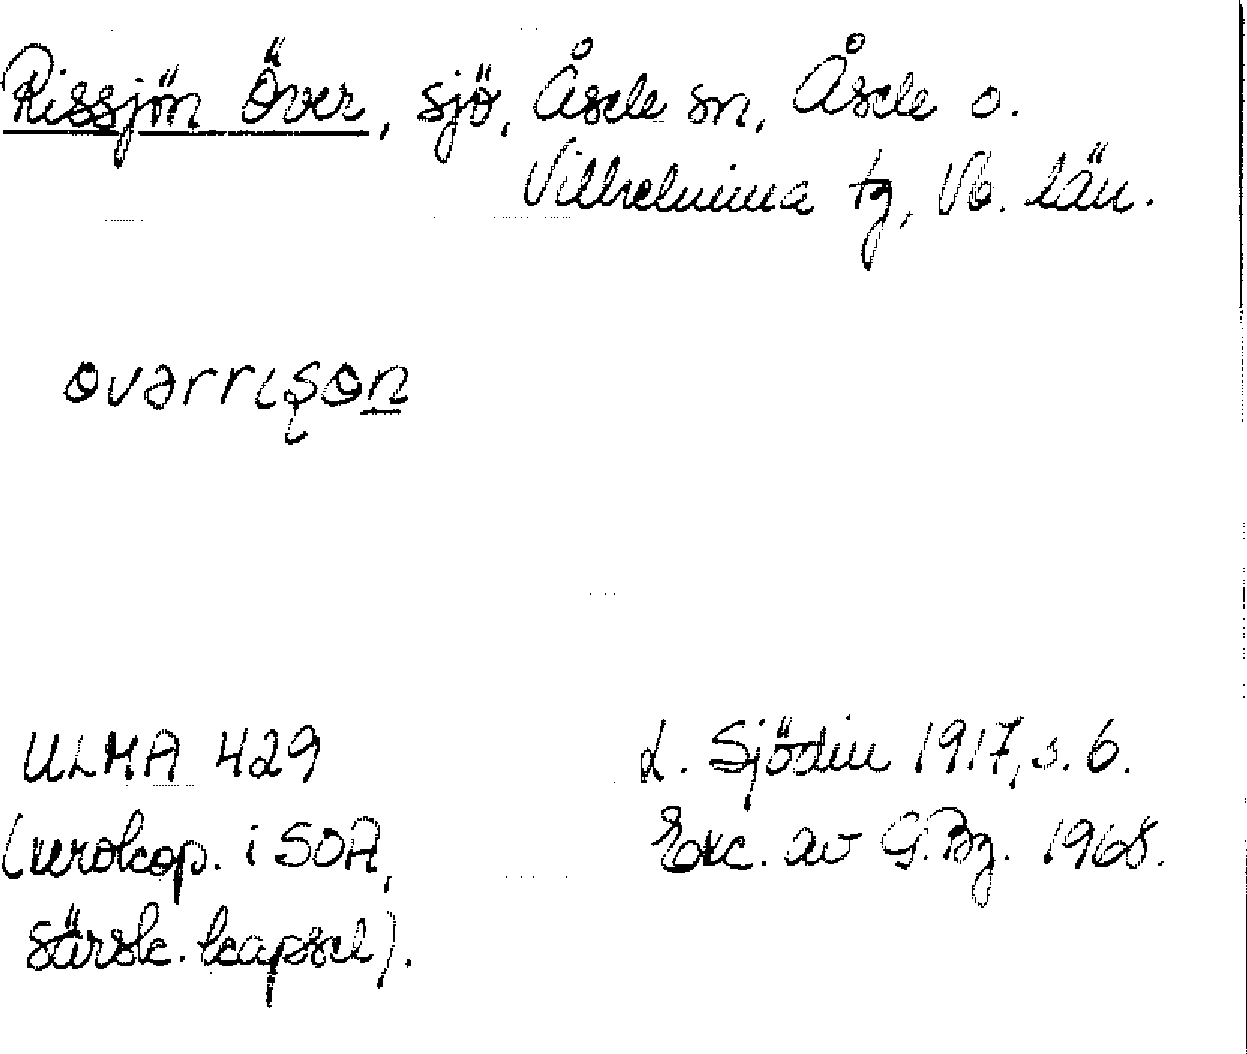 Rissjön Över, sjö, Åsele sn, Åsele o.
Vilhelmina tg, Vb. län.
ɵvərrɩʂɵn
ULMA 429
L. Sjödin 1917, s. 6.
(xerokop. i SOA,
Exc. av G.Bg. 1968.
särsk. kapsel).